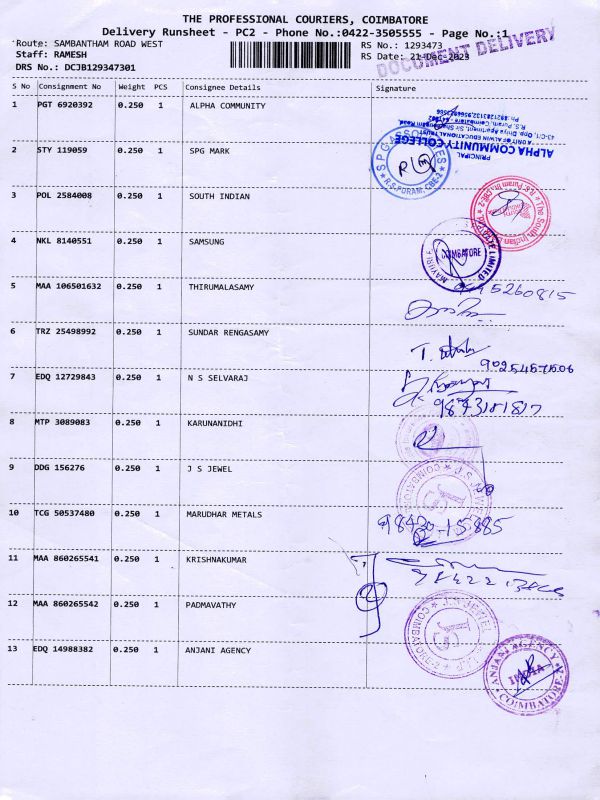 THE PROFESSIONAL COURIERS, COIMBATORE
Delivery Runsheet - PC2 - Phone No.:0422-3505555 - Page No.:1
Route: SAMBANTHAM ROAD WEST
RS No.: 1293473
Staff: RAMESH
RS Date: 21-Dec-2023
DOCUMENT DELIVERY
DRS No.: DCJB129347301
S No Consignment No Weight PCS Consignee Details Signature
1 PGT 6920392 0.250 1 ALPHA COMMUNITY
PRINCIPAL
ALPHA COMMUNITY COLLEGE
2 STY 119059 0.250 1 SPG MARK
SPG ASSOCIATES
R.S.PURAM, CBE-2
3 POL 2584008 0.250 1 SOUTH INDIAN
4 NKL 8140551 0.250 1 SAMSUNG
COIMBATORE
LIMITED
5 MAA 106501632 0.250 1 THIRUMALASAMY
5260815
6 TRZ 25498992 0.250 1 SUNDAR RENGASAMY
7 EDQ 12729843 0.250 1 N S SELVARAJ
9843181817
8 MTP 3089083 0.250 1 KARUNANIDHI
9 DDG 156276 0.250 1 J S JEWEL
10 TCG 50537480 0.250 1 MARUDHAR METALS
98430-15885
11 MAA 860265541 0.250 1 KRISHNAKUMAR
12 MAA 860265542 0.250 1 PADMAVATHY
COIMBATORE-2
13 EDQ 14988382 0.250 1 ANJANI AGENCY
ANJANI AGENCY
INDIA
COIMBATORE